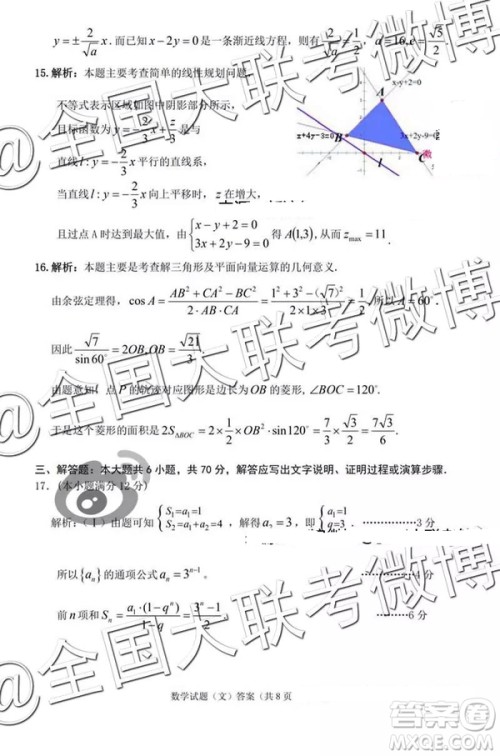 y=±2/√a x.而已知x-2y=0是一条渐近线方程,则有2/√a=1/2,a=16,e=√5/2
15.解析:本题主要考查简单的线性规划问题.
不等式表示区域如图中阴影部分所示,
目标函数为y=-2/3x+z/3是与
直线l:y=-2/3x平行的直线系,
当直线l:y=-2/3x向上平移时,z在增大,
且过点A时达到最大值,由{x-y+2=0 3x+2y-9=0 得A(1,3),从而z_max=11
x-y+2=0
A
x+4y-3=0
B
3x+2y-9=0
C
l
16.解析:本题主要是考查解三角形及平面向量运算的几何意义.
由余弦定理得,cosA=(AB²+CA²-BC²)/(2·AB·CA)=(1²+3²-(√7)²)/(2×1×3)=1/2,所以A=60°.
因此√7/sin60°=2OB,OB=√21/3.
由题意知,点P的轨迹对应图形是边长为OB的菱形,∠BOC=120°.
于是这个菱形的面积是2S_ΔBOC=2×1/2×OB²·sin120°=7/3×√3/2=7√3/6.
三、解答题:本大题共6小题,共70分,解答应写出文字说明、证明过程或演算步骤.
17.(本小题满分12分)
解析:(Ⅰ)由题可知{S₁=a₁=1 S₂=a₁+a₂=4,解得a₂=3,即{a₁=1 q=3. ··············3分
所以{aₙ}的通项公式aₙ=3ⁿ⁻¹ ··············4分
前n项和Sₙ=a₁·(1-qⁿ)/(1-q)=(3ⁿ-1)/2 ··············6分
数学试题(文)答案(共8页
@全国大联考微博
@全国大联考微博
@全国大联考微博
答案圈
MXQE.COM